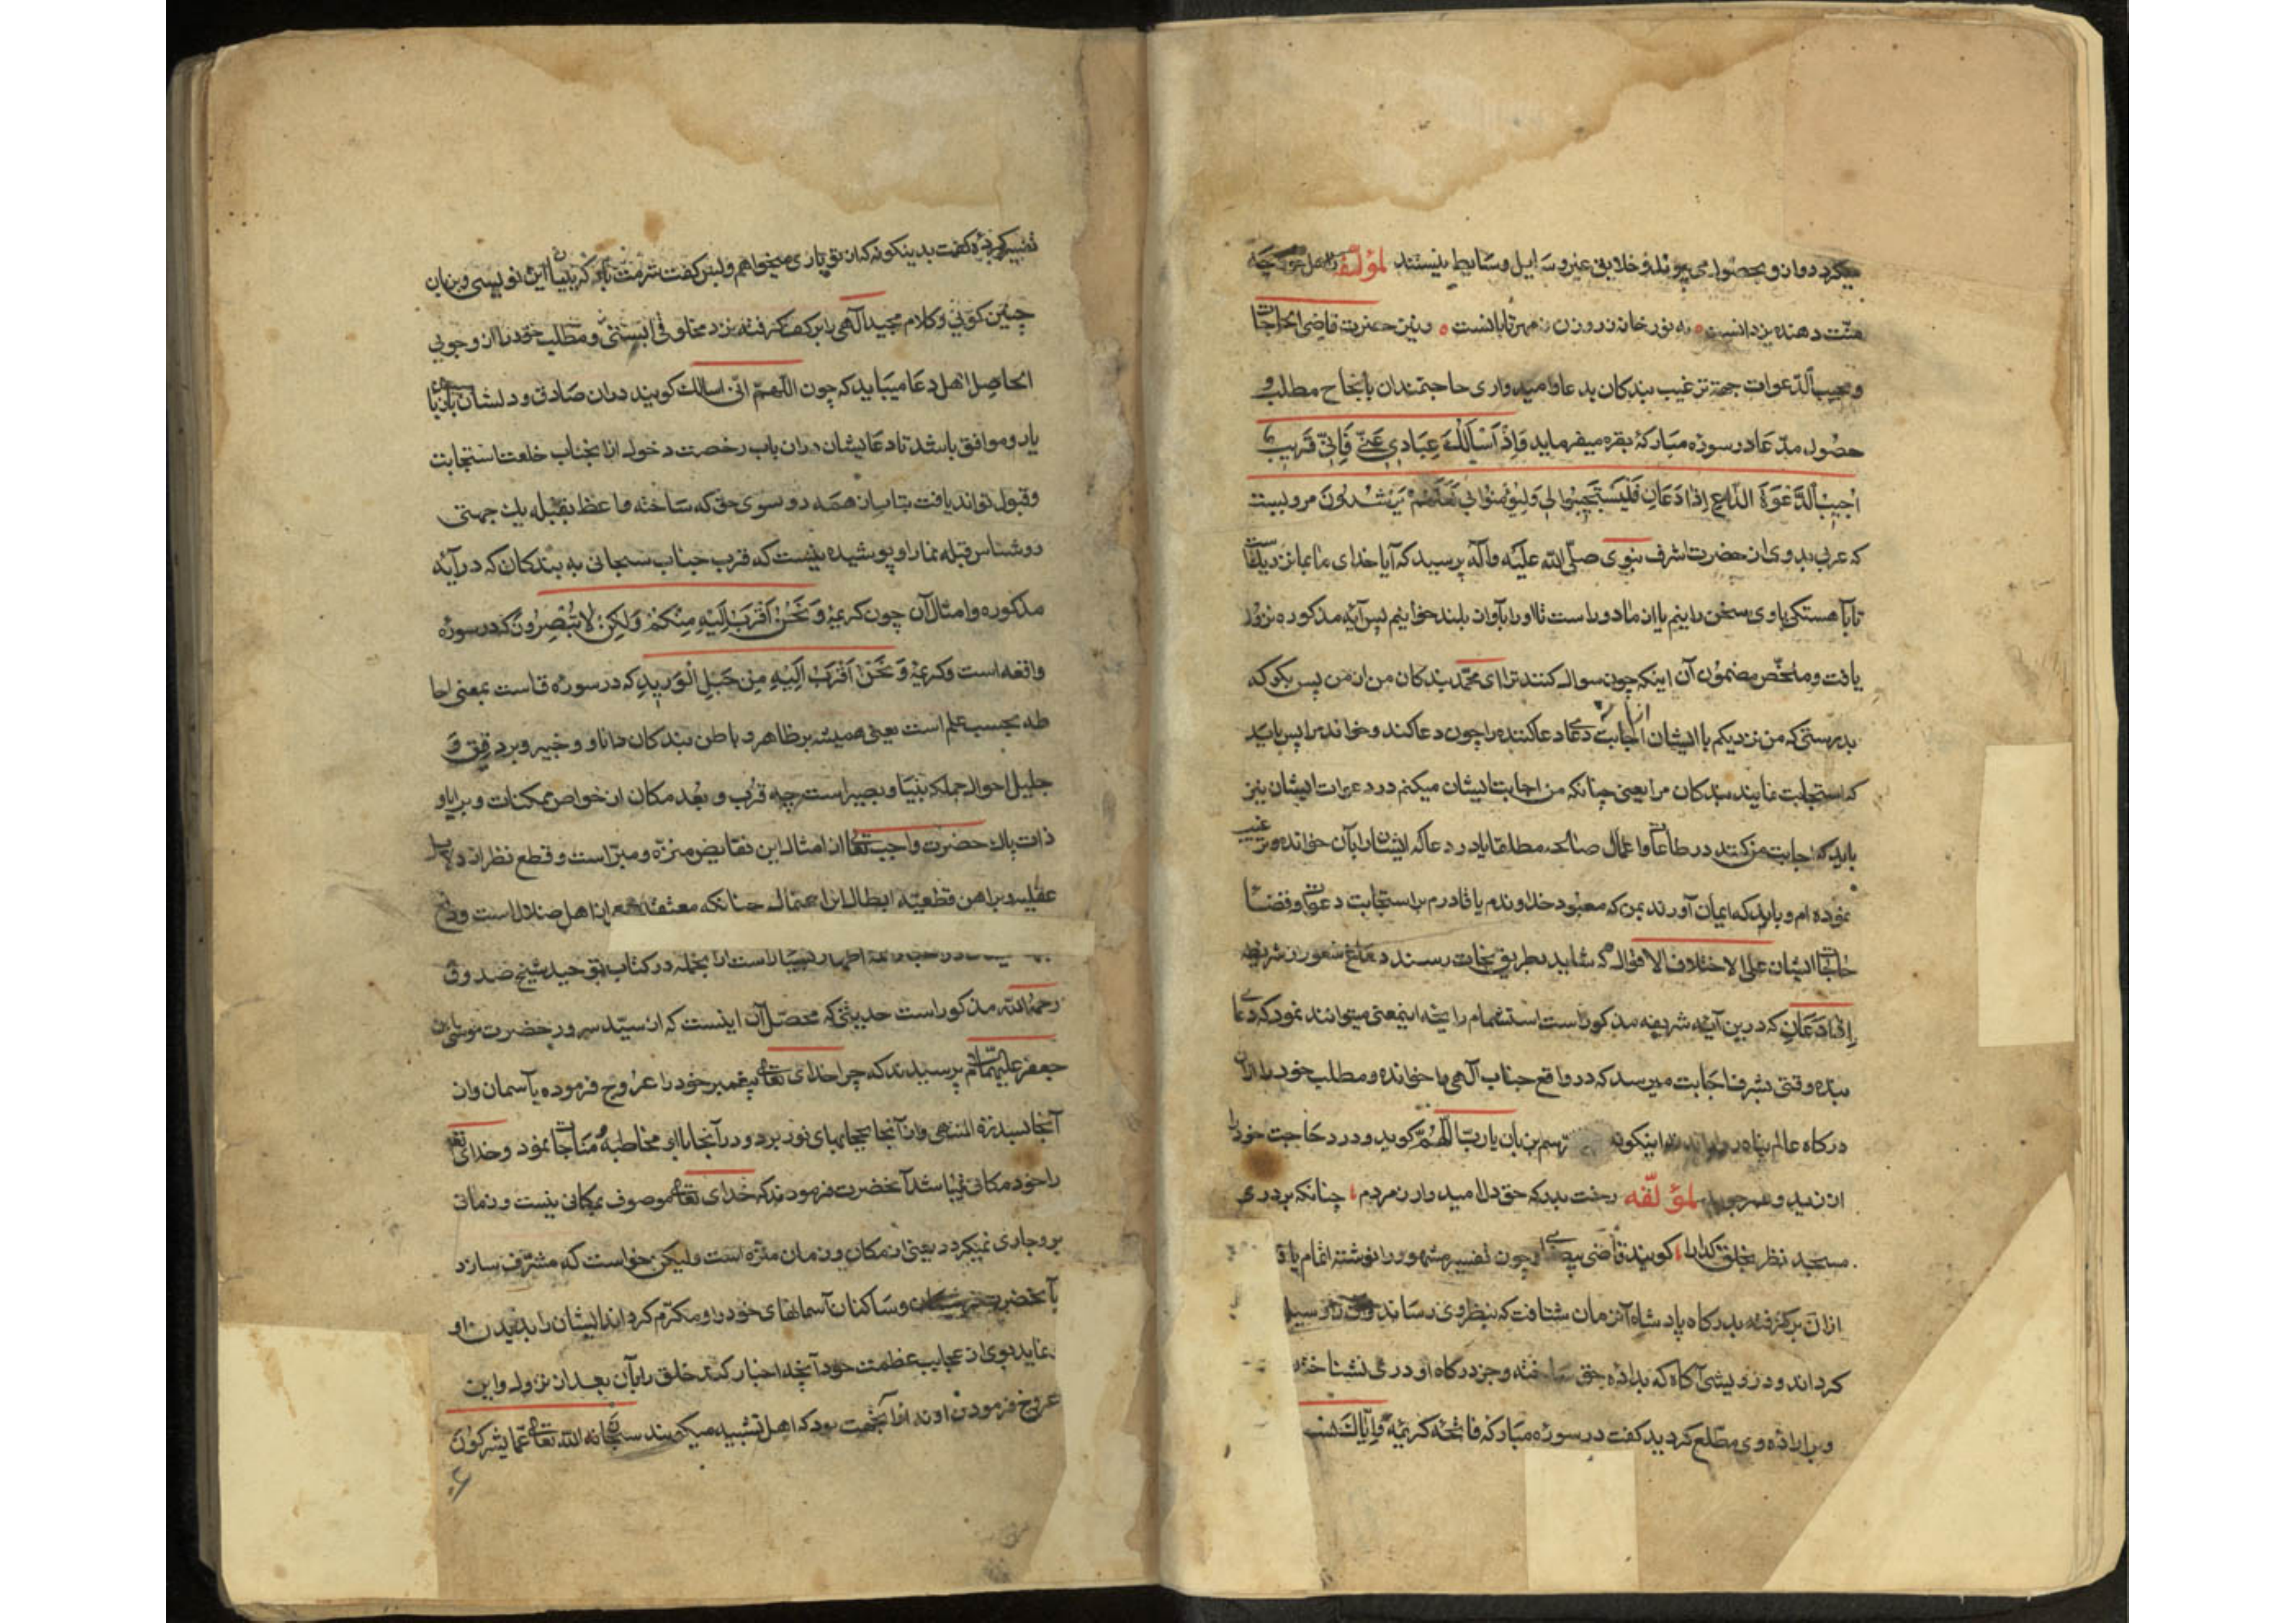 میکردد وان و بحصول می پیوندد و خلایق غیر وسایل و وسایط نیستند لمؤلفه
منّت دهنده یزدانست نه نور خانه ز روزن ز مهر تابانست و نیز حضرت قاضی الحاجات
و مجیب الدّعوات جهة ترغیب بندکان بدعا و امیدواری حاجتمندان بانجاح مطلب و
حصُول مدّعا در سورهٔ مبارکهٔ بقره میفرماید وَاِذْ اَسْاَلَكَ عِبَادِی عَنّی فَاِنّی قَرِیبٌ
اُجِیبُ الدَّعْوَةَ الدّٰاعِ اِذٰا دَعَانِ فَلْیَسْتَجِیبُوا لِی وَلْیُؤْمِنُوا بِی لَعَلَّهُمْ یَرْشُدُونَ مرویست
که عربی بدوی از حضرت اشرف نبوی صلّی اللّه علیه وآله پرسید که آیا خدای ما بما نزدیکست
تا بآهستکی باوی سخن رانیم یا از ما دور است تا او را بآواز بلند خوانیم پس آیهٔ مذکوره نزول
یافت و ملخّص مضمُون آن اینکه چون سوال کنند ترا ای محمّد بندکان من از من پس بکو که
بدرستی که من نزدیکم باایشان اجابت دعا دعاکننده را چون دعا کند و خواند مرا پس باید
که استجابت نمایند بندکان مرا یعنی چنانکه من اجابت ایشان میکنم در دعوات ایشان نیز
باید که اجابت من کنند در طاعات و اعمال صالحه مطلقا یا در دعا که ایشان را بآن خوانده و ترغیب
نموده ام و باید که ایمان آورند بمن که معبود خداوندم یا قادرم بر استجابت دعوات و قضا
حاجات ایشان علی الاختلاف الاقوال که شاید بطریق نجات رسند
اِذٰا دَعَانِ که درین آیهٔ شریفه مذکور است استشمام رایحهٔ اینمعنی میتوانند نمود که دعای
بنده وقتی بشرف اجابت میرسد که در واقع جناب آلهی را خوانده و مطلب خود را از آن
درکاه عالم پناه بزبان یاربّ اللّهُمّ کوید و در حاجت خود را
از زید و عمر جوید لمؤلّفه رخت بدرکه حق دل امیدوار ز مردم چنانکه بر در
مسجد نظر بخلق کدا را کویند قاضی بیضاوی چون تفسیر مشهور را نوشته اتمام یاف
ازان برکرفته بدرکاه پادشاه آنزمان شتافت که بنظر وی رساند
کرداند و درویشی آکاه که بداده حق ساخته و جز درکاه او دری نشناخته
و بر ارادهٔ وی مطّلع کردید کفت در سورهٔ مبارکه فاتحه کریمهٔ وَاِیّٰاكَ نَستَ
تفسیر کردهٔ کفت بدینکونه که از تو یاری میخواهم و بس کفت شرمت باد کر بدینسان نویسی و بزبان
چنین کوئی و کلام مجید آلهی را بر کف کرفته نزد مخلوقی ایستی و مطلب خود را از وجوئی
الحاصل اهل دعا میباید که چون اللّهمّ انّی اسالك کویند دران صادق و دلشان بازبان
یار و موافق باشد تا دعایشان دران باب رخصت دخول از انجناب خلعت استجابت
و قبول تواند یافت بتابان همه رو سوی حق که ساخته واعظ بقبله یك جهتی
روشناس قبله نما را و پوشیده نیست که قرب جناب سبحانی به بندکان که در آیهٔ
مذکوره و امثال آن چون کریمهٔ وَنَحْنُ اَقْرَبُ اِلَیْهِ مِنْکُمْ وَلٰکِنْ لاٰتُبْصِرُونَ که در سورهٔ
واقعه است و کریمهٔ وَنَحْنُ اَقْرَبُ اِلَیْهِ مِنْ حَبْلِ الْوَرِیدِ که در سورهٔ قاست بمعنی احا
طه بحسب علم است یعنی همیشه بر ظاهر و باطن بندکان دانا و خبیر و بر دقیق و
جلیل احوال جملکه بینا و بصیر است چه قُرب و بعُد مکان از خواص ممکنات و برایا و
ذات پاك حضرت واجب تعالی از امثال این نقایض منزّه و مبرّاست و قطع نظر از دلایل
عقلیه و براهین قطعیّه ابطال این احتمال چنانکه معتقد از اهل ضلال است
اطهار بسیار است ازانجمله در کتاب توحید شیخ صدوق
رحمهُ اللّه مذکور است حدیثی که محصّل آن اینست که از سیّد سرور حضرت موسی بن
جعفر علیهما السلام پرسیدند که چرا خدای تعالی پیغمبر خود را عروج فرموده بآسمان وازن
آنجا بسدرة المنتهی وازآنجا بحجابهای نور برد و درآنجا باو مخاطبه و مناجات نمود و خدای تعالی
را خود مکانی نمیباشد آنحضرت فرمودند که خدای تعالی موصوف بمکانی نیست و زمانی
برو جاری نمیکردد یعنی از مکان و زمان منزّه است ولیکن خواست که مشرّف سازد
بآنحضرت و ساکنان آسمانهای خود را و مکرّم کرداند ایشان را بدیدن او
نماید بوی از عجایب عظمت خود آنچه اخبار کند خلق را بآن بعد از نزول و این
عروج فرمودن او نه ازآنجهت بود که اهل تشبیه میکویند سبحانه اللّه تعالی عمّا یشرکون